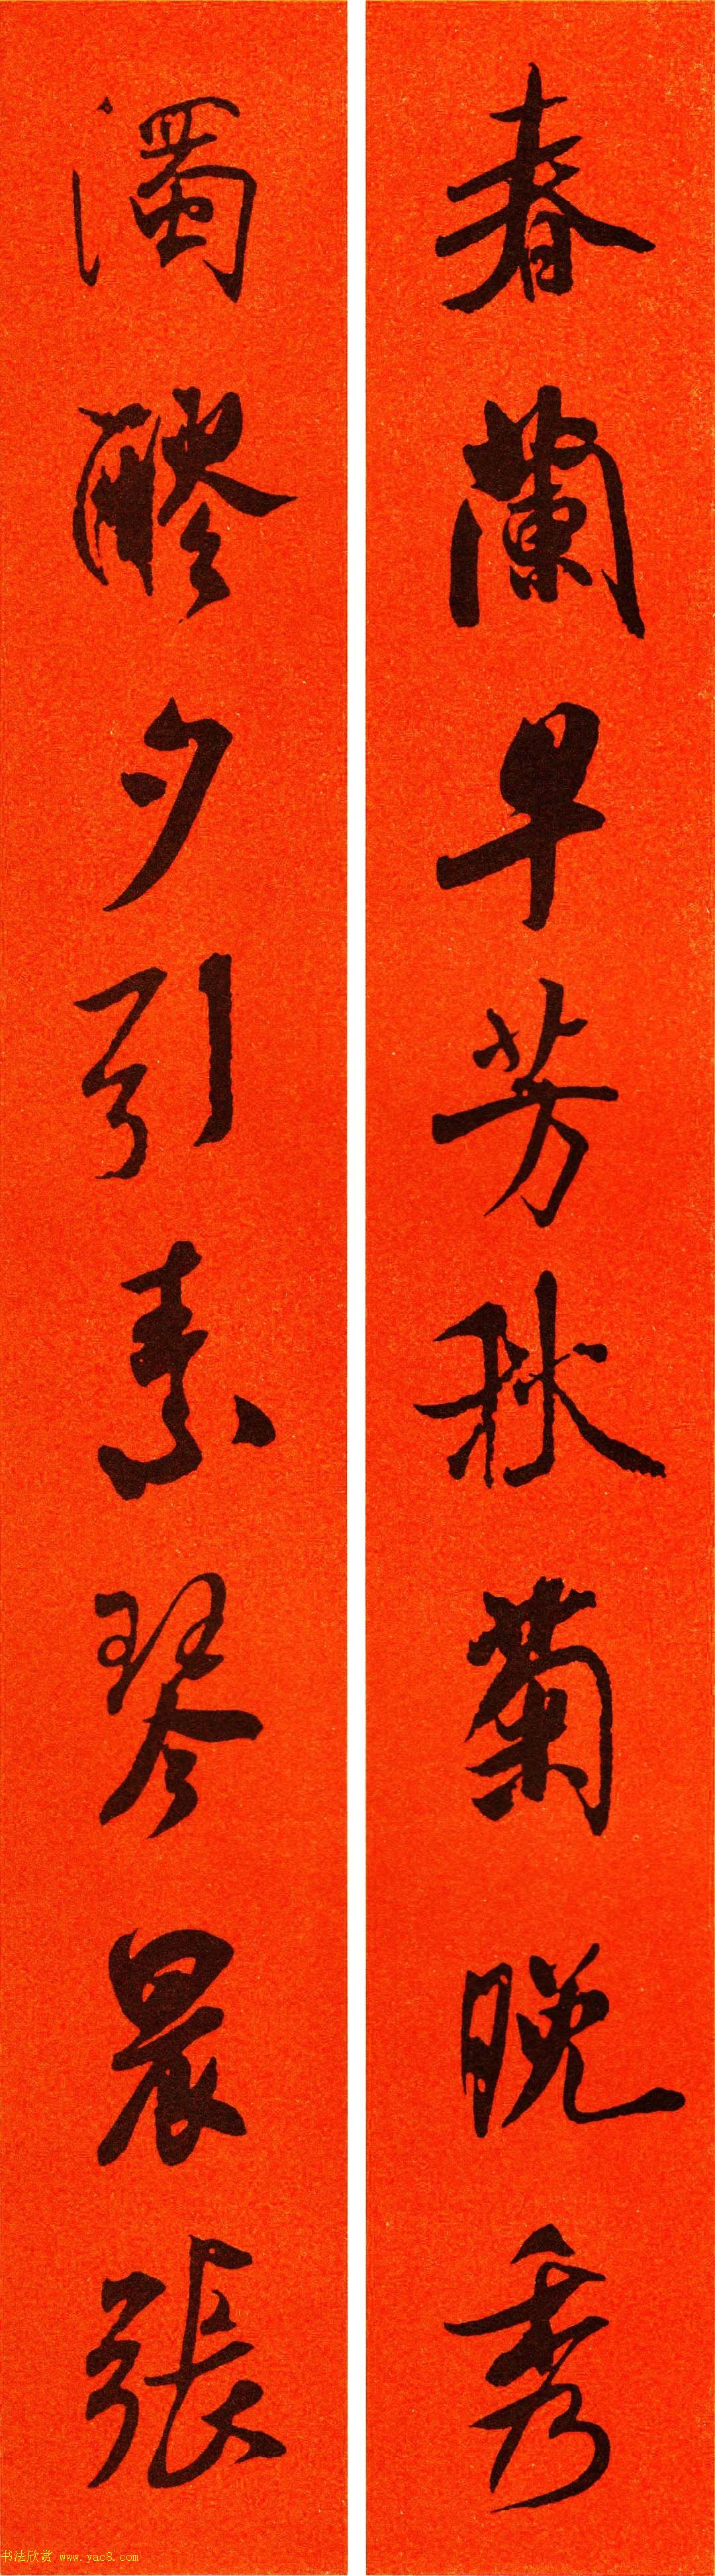 春蘭早芳秋菊晚秀
濁醪夕引素琴晨張
书法欣赏 www.yac8.com